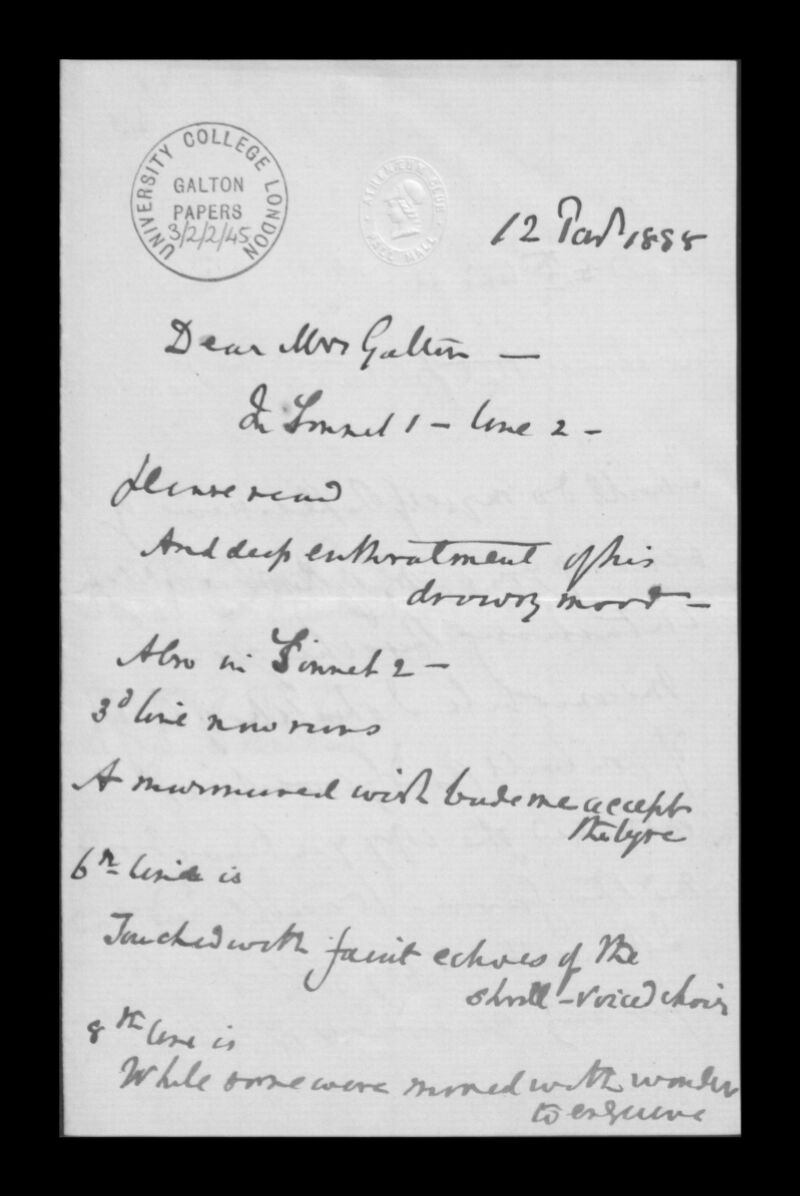 UNIVERSITY COLLEGE LONDON
GALTON
PAPERS
3/2/2/45
ATHENÆUM CLUB
PALL MALL
12 1888
Dear Mrs Galton —
In Sonnet 1 — line 2 —
please read
And deep enthralment of his
drowsy mood —
Also in Sonnet 2 —
3d line now runs
A murmured wish bade me accept
the lyre
6th line is
Touched with faint echoes of the
shrill-voiced choir
8th line is
While some were moved with wonder
to enquire